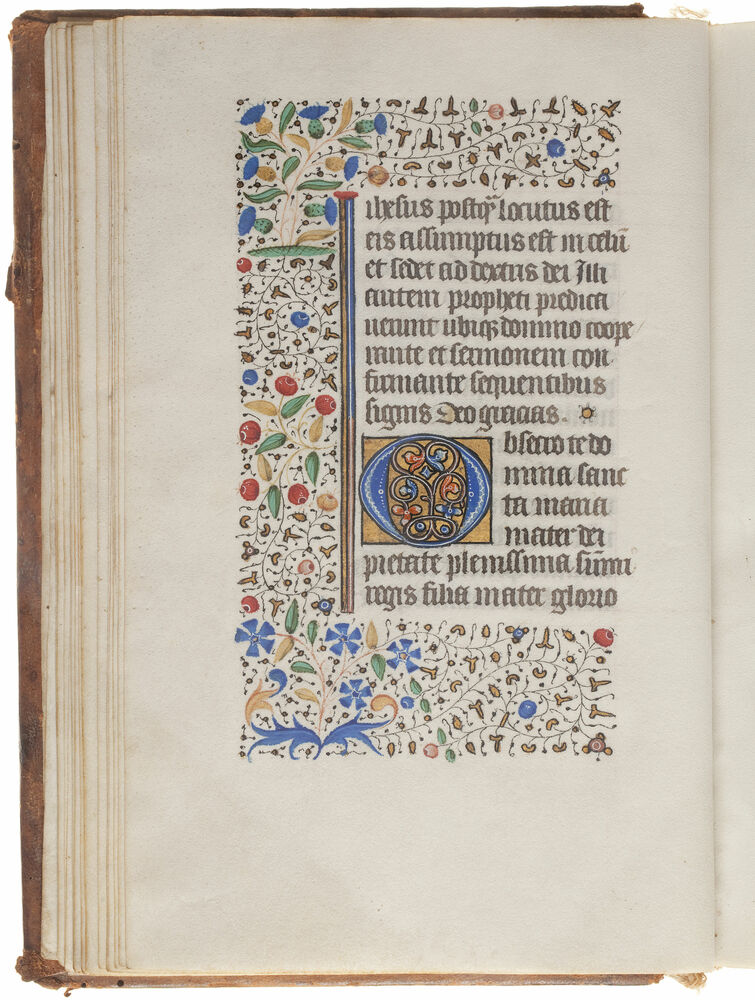 ihesus postq̄ locutus est
eis assumptus est in celū
et sedet ad dextris dei Illi
autem propheti predica
uerunt ubiqꝫ domino coope
rante et sermonem con
firmante sequentibus
signis Deo gracias.
Obsecro te do
mina sanc
ta maria
mater dei
pietate plenissima sūmi
regis filia mater glorio